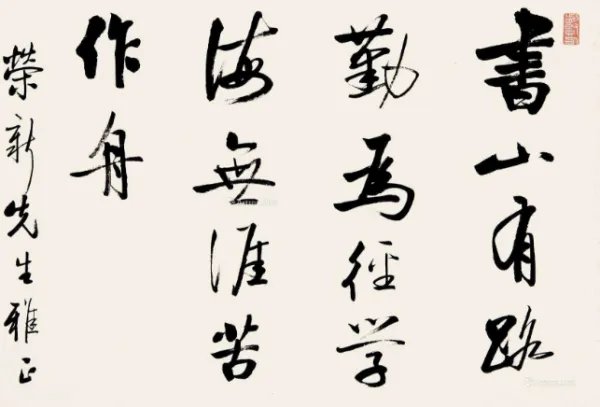 書山有路
勤為徑学
海無涯苦
作舟
榮新先生雅正